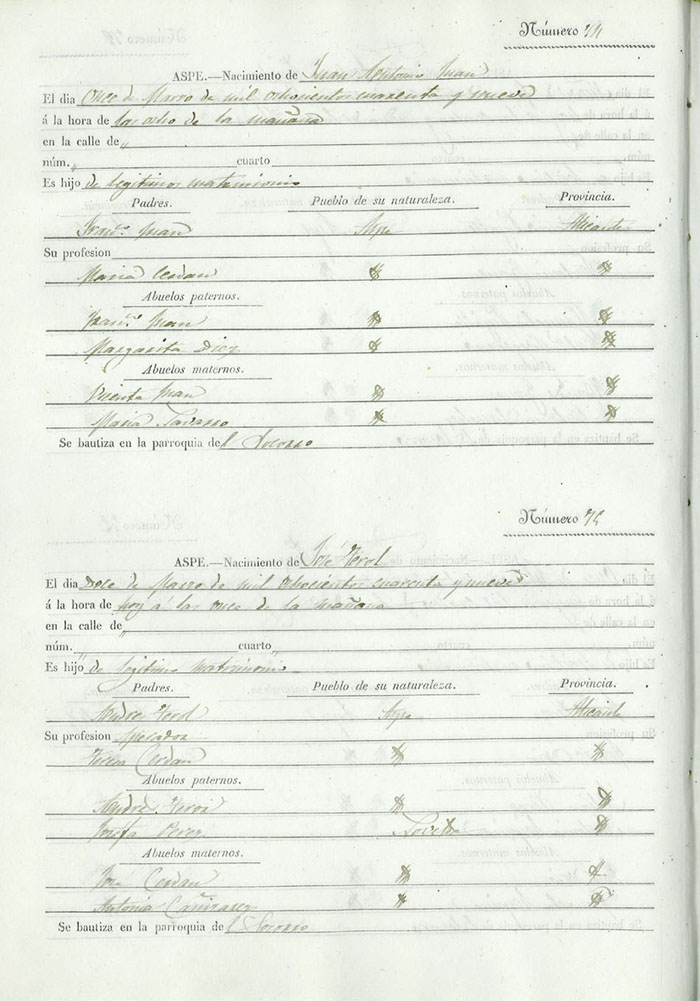 Número 74
ASPE.—Nacimiento de Juan Antonio Juan
El dia Once de Marzo de mil ochocientos cuarenta y nueve
á la hora de las ocho de la mañana
en la calle de „
núm. „ cuarto
Es hijo de legitimo matrimonio
Padres. Pueblo de su naturaleza. Provincia.
Franᶜᵒ Juan Aspe Alicante
Su profesion
Maria Cerdan
Abuelos paternos.
Franᶜᵒ Juan
Margarita Diez
Abuelos maternos.
Juan
Maria
Se bautiza en la parroquia del Socorro
Número 75
ASPE.—Nacimiento de José
El dia Doce de Marzo de mil ochocientos cuarenta y nueve
á la hora de hoy á las once de la mañana
en la calle de „
núm. „ cuarto „
Es hijo de legitimo matrimonio
Padres. Pueblo de su naturaleza. Provincia.
Andres Aspe Alicante
Su profesion
Cerdan
Abuelos paternos.
Andres
Josefa Perez
Abuelos maternos.
José Cerdan
Antonia Cañizares
Se bautiza en la parroquia de l Socorro